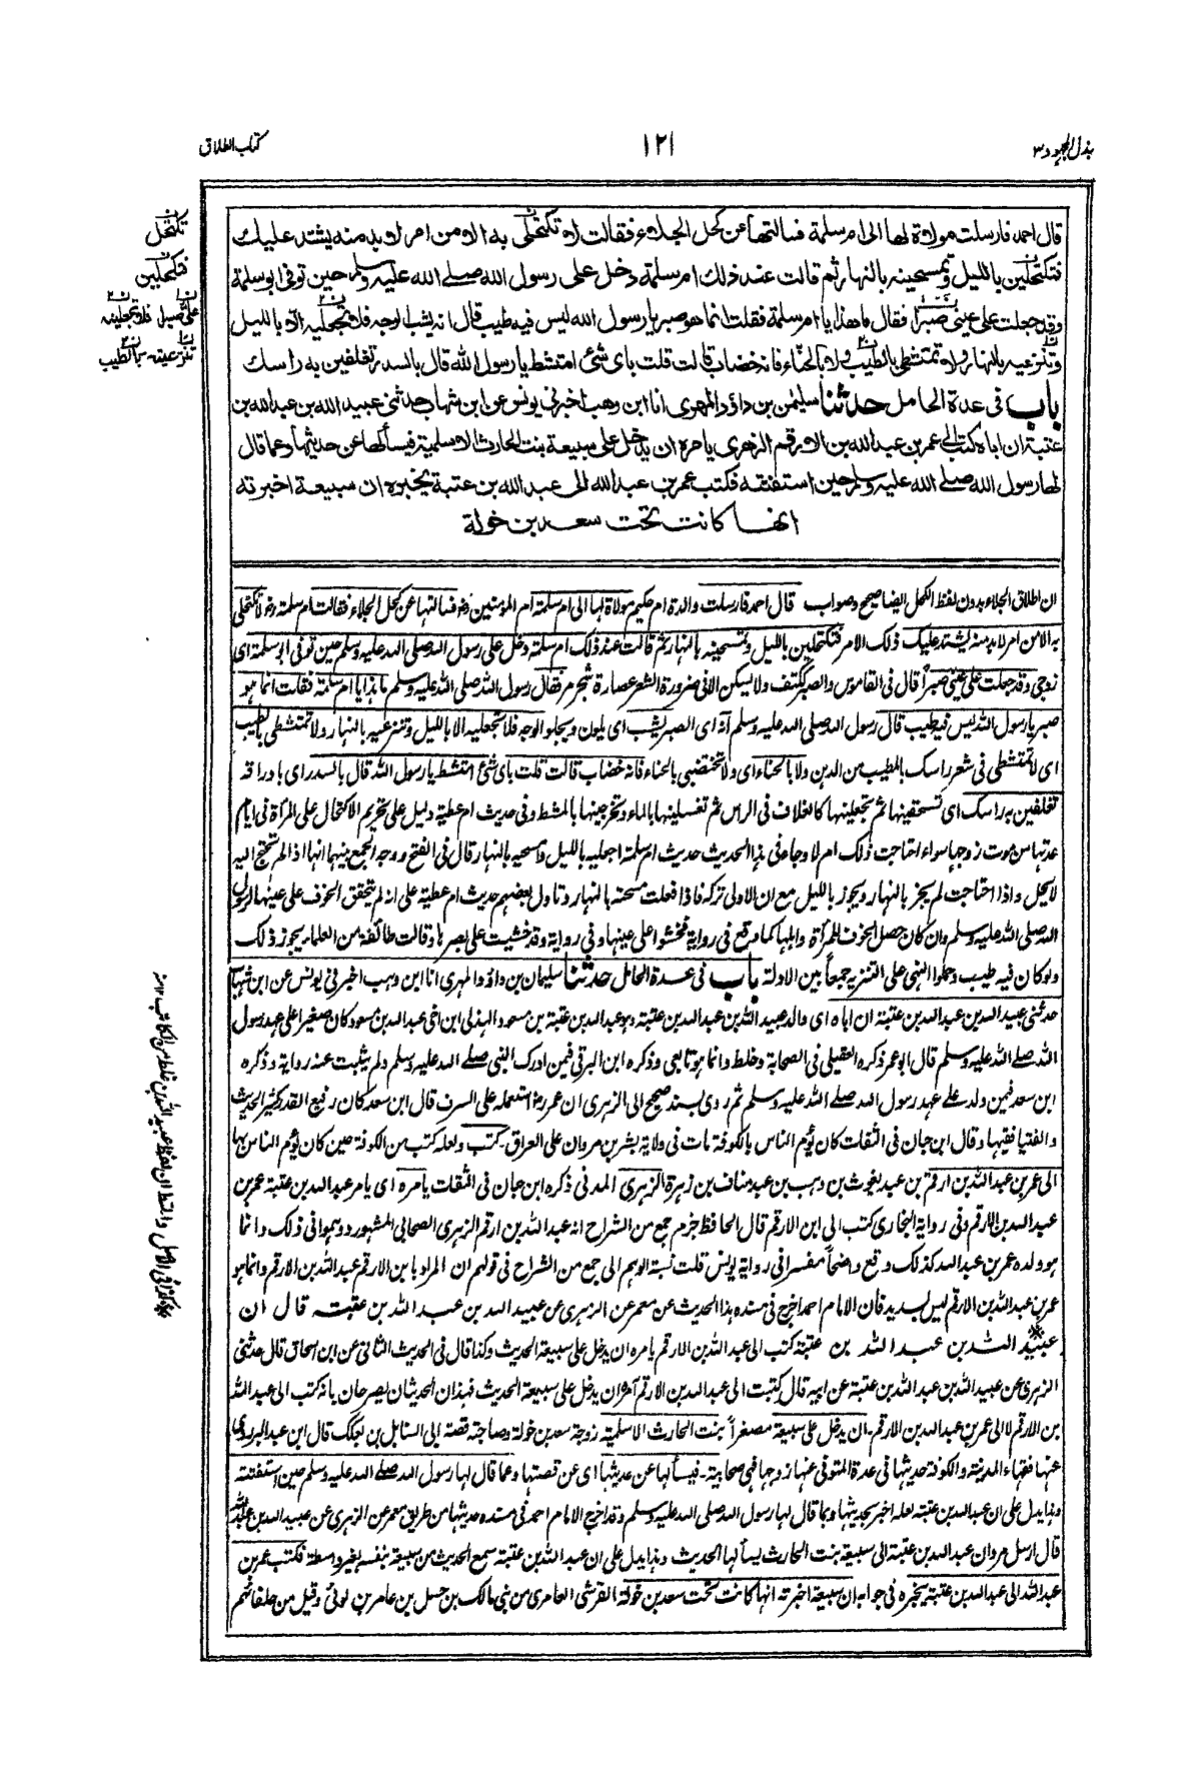 بذل المجهود ٣
١٢١
كتاب الطلاق
قال احمد فارسلت مولاة لها الى ام سلمة فسالتها عن كحل الجلاء فقالت لا تكتحلى به الا من امر لا بد منه يشتد عليك
فتكتحلين بالليل وتمسحينه بالنهار ثم قالت عند ذلك ام سلمة دخل على رسول الله صلى الله عليه وسلم حين توفى ابو سلمة
وقد جعلت على عينى صبرا فقال ما هذا يا ام سلمة فقلت انما هو صبر يا رسول الله ليس فيه طيب قال انه يشب الوجه فلا تجعليه الا بالليل
وتنزعيه بالنهار ولا تمتشطى بالطيب ولا بالحناء فانه خضاب قالت قلت باى شئ امتشط يا رسول الله قال بالسدر تغلفين به راسك
باب فى عدة الحامل حدثنا سليمن بن داؤد المهرى انا ابن وهب اخبرنى يونس عن ابن شهاب حدثنى عبيد الله بن عبد الله بن
عتبة ان اباه كتب الى عمر بن عبد الله بن الارقم الزهرى يامره ان يدخل على سبيعة بنت الحارث الاسلمية فيسألها عن حديثها وعما قال
لها رسول الله صلى الله عليه وسلم حين استفتته فكتب عمر بن عبد الله الى عبد الله بن عتبة يخبره ان سبيعة اخبرته
انها كانت تحت سعد بن خولة
تكتحل
فتكتحلين
على صبرا فلا تجعلينه
تنزعينه بالطيب
ان اطلاق الجلاء بدون لفظ الكحل ايضا صحيح وصواب قال احمد فارسلت والدة ام حكيم مولاة لها الى ام سلمة ام المؤمنين رض فسالتها عن كحل الجلاء فقالت ام سلمة رض لا تكتحلى
به الا من امر لا بد منه يشتد عليك ذلك الامر فتكتحلين بالليل وتمسحينه بالنهار ثم قالت عند ذلك ام سلمة دخل على رسول الله صلى الله عليه وسلم حين توفى ابو سلمة اى
زوجى وقد جعلت على عينى صبراً قال فى القاموس والصبر ككتف ولا يسكن الا فى ضرورة الشعر عصارة شجر مر فقال رسول الله صلى الله عليه وسلم ما هذا يا ام سلمة فقلت انما هو
صبر يا رسول الله ليس فيه طيب قال رسول الله صلى الله عليه وسلم انه اى الصبر يشب اى يلون ويجلو الوجه فلا تجعليه الا بالليل وتنزعيه بالنهار ولا تمتشطى بالطيب
اى لا تمتشطى فى شعر راسك بالمطيب من الدهن ولا بالحناء اى ولا تختضبى بالحناء فانه خضاب قالت قلت باى شئ امتشط يا رسول الله قال بالسدر اى باوراقه
تغلفين به راسك اى تسحقينها ثم تجعلينها كالغلاف فى الراس ثم تغسلينها بالماء وتخرجينها بالمشط وفى حديث ام عطية دليل على تحريم الاكتحال على المرأة فى ايام
عدتها من موت زوجها سواء احتاجت ذلك ام لا وجاء فى هذا الحديث حديث ام سلمة اجعليه بالليل وامسحيه بالنهار قال فى الفتح ووجه الجمع بينهما انها اذا لم تحتج اليه
لا يحل واذا احتاجت لم يجز بالنهار ويجوز بالليل مع ان الاولى تركه فاذا فعلت مسحته بالنهار وتاول بعضهم حديث ام عطية على انه لم يتحقق الخوف على عينها لرسول
الله صلى الله عليه وسلم وان كان حصل الخوف للمرأة واهلها كما وقع فى رواية فخشوا على عينها وفى رواية وقد خشيت على بصرها وقالت طائفة من العلماء يجوز ذلك
ولو كان فيه طيب وحملوا النهى على التنزيه جمعاً بين الادلة باب فى عدة الحامل حدثنا سليمان بن داؤد المهرى انا ابن وهب اخبرنى يونس عن ابن شهاب
حدثنى عبيد الله بن عبد الله بن عتبة ان اباه اى والد عبيد الله بن عبد الله بن عتبة وهو عبد الله بن عتبة بن مسعود الهذلى ابن اخى عبد الله بن مسعود كان صغيرا على عهد رسول
الله صلى الله عليه وسلم قال ابو عمر ذكره العقيلى فى الصحابة وغلط وانما هو تابعى وذكره ابن البرقى فيمن ادرك النبى صلى الله عليه وسلم ولم يثبت عنه رواية وذكره
ابن سعد فيمن ولد على عهد رسول الله صلى الله عليه وسلم ثم روى بسند صحيح الى الزهرى ان عمر رض استعمله على السوق قال ابن سعد كان رفيع القدر كثير الحديث
والفتيا فقيها وقال ابن حبان فى الثقات كان يؤم الناس بالكوفة مات فى ولاية بشر بن مروان على العراق كتب ولعله كتب من الكوفة حين كان يؤم الناس بها
الى عمر بن عبد الله بن ارقم بن عبد يغوث بن وهب بن عبد مناف بن زهرة الزهرى المدنى ذكره ابن حبان فى الثقات يامره اى يامر عبد الله بن عتبة عمر بن
عبد الله بن الارقم وفى رواية البخارى كتب الى ابن الارقم قال الحافظ جزم جمع من الشراح انه عبد الله بن ارقم الزهرى الصحابى المشهور ووهموا فى ذلك وانما
هو ولده عمر بن عبد الله كذلك وقع واضحاً مفسرا فى رواية يونس قلت نسبة الوهم الى جمع من الشراح فى قولهم ان المراد بابن الارقم عبد الله بن الارقم وانما هو
عمر بن عبد الله بن الارقم ليس بسديد فان الامام احمد اخرج فى مسنده هذا الحديث عن معمر عن الزهرى عن عبيد الله بن عبد الله بن عتبة قال ان
عبيد الله بن عبد الله بن عتبة كتب الى عبد الله بن الارقم يامره ان يدخل على سبيعة الحديث وكذا قال فى الحديث الثانى عن ابن اسحاق قال حدثنى
الزهرى عن عبيد الله بن عبد الله بن عتبة عن ابيه قال كتبت الى عبد الله بن الارقم آمره ان يدخل على سبيعة الحديث فهذان الحديثان يصرحان بانه كتب الى عبد الله
بن الارقم لا الى عمر بن عبد الله بن الارقم ان يدخل على سبيعة مصغراً بنت الحارث الاسلمية زوجة سعد بن خولة وصاحبة قصة ابى السنابل بن بعكك قال ابن عبد البر روى
عنها فقهاء المدينة والكوفة حديثها فى عدة المتوفى عنها زوجها فهى صحابية فيسألها عن حديثها اى عن قصتها وعما قال لها رسول الله صلى الله عليه وسلم حين استفتته
وهذا يدل على ان عبد الله بن عتبة لعله اخبر بحديثها وبما قال لها رسول الله صلى الله عليه وسلم وقد اخرج الامام احمد فى مسنده حديثها من طريق معمر عن الزهرى عن عبيد الله بن عبد الله
قال ارسل مروان عبد الله بن عتبة الى سبيعة بنت الحارث يسألها الحديث وهذا يدل على ان عبد الله بن عتبة سمع الحديث من سبيعة بنفسه بغير واسطة فكتب عمر بن
عبد الله الى عبد الله بن عتبة يخبره فى جوابه ان سبيعة اخبرته انها كانت تحت سعد بن خولة القرشى العامرى من بنى مالك بن حسل بن عامر بن لوئى وقيل من حلفائهم
* هكذا فى الاصل والظاهر ان لفظ عبيد الله بن غلط من الكاتب ١٢ منه